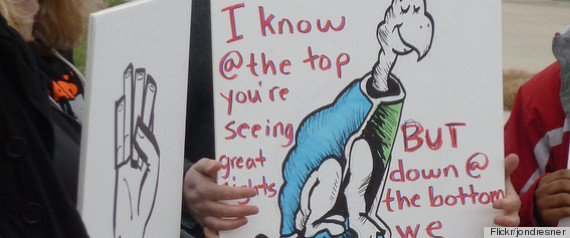 I know
@the top
you're
seeing
great
sights
BUT
down @
the bottom
we
Flickr/jondresner